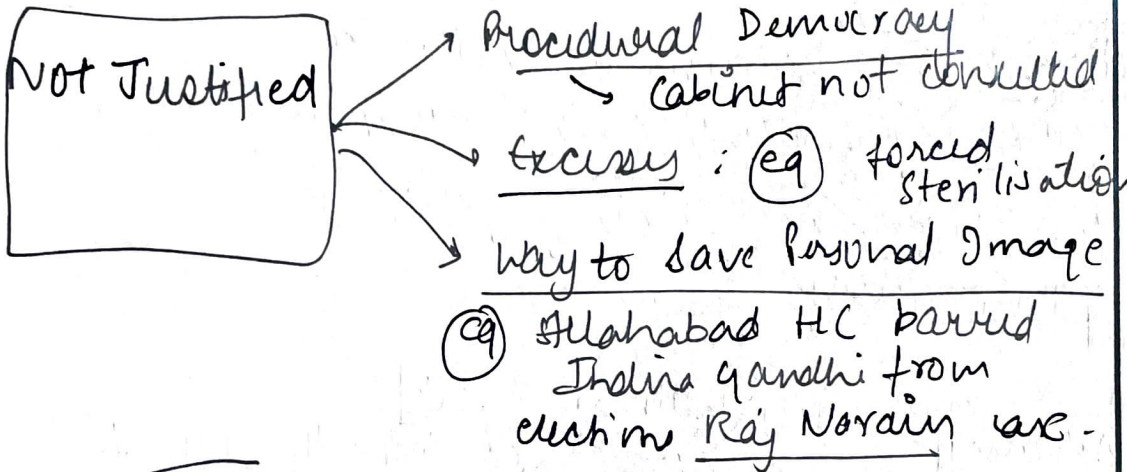 Not Justified
Procedural Democracy
Cabinet not consulted
Excesses : eg forced
sterilisation
Way to save Personal Image
eg Allahabad HC barred
Indira Gandhi from
elections Raj Narain case.